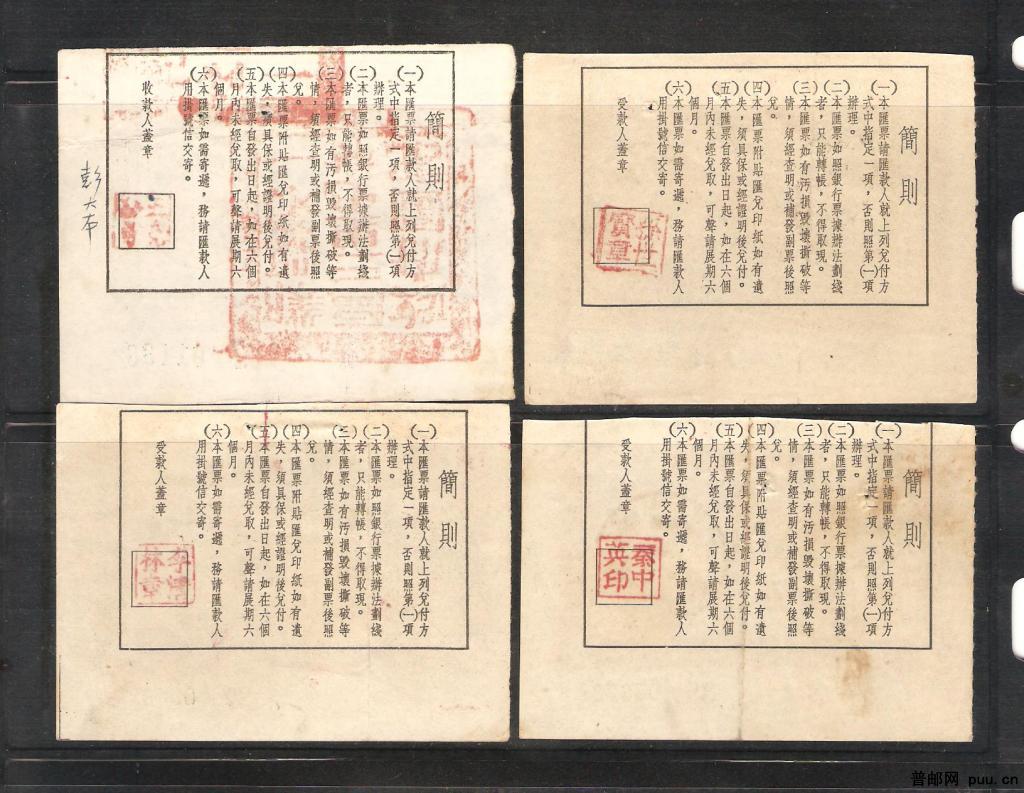 簡則
(一)本匯票請匯款人就上列兌付方
式中指定一項，否則照第(一)項
辦理。
(二)本匯票如照銀行票據辦法劃綫
者，只能轉帳，不得取現。
(三)本匯票如有污損毀壞撕破等
情，須經查明或補發副票後照
兌。
(四)本匯票附貼匯兌印紙如有遺
失，須具保或經證明後兌付。
(五)本匯票自發出日起，如在六個
月內未經兌取，可聲請展期六
個月。
(六)本匯票如需寄遞，務請匯款人
用掛號信交寄。
收款人蓋章
彭大本
簡則
(一)本匯票請匯款人就上列兌付方
式中指定一項，否則照第(一)項
辦理。
(二)本匯票如照銀行票據辦法劃綫
者，只能轉帳，不得取現。
(三)本匯票如有污損毀壞撕破等
情，須經查明或補發副票後照
兌。
(四)本匯票附貼匯兌印紙如有遺
失，須具保或經證明後兌付。
(五)本匯票自發出日起，如在六個
月內未經兌取，可聲請展期六
個月。
(六)本匯票如需寄遞，務請匯款人
用掛號信交寄。
受款人蓋章
簡則
(一)本匯票請匯款人就上列兌付方
式中指定一項，否則照第(一)項
辦理。
(二)本匯票如照銀行票據辦法劃綫
者，只能轉帳，不得取現。
(三)本匯票如有污損毀壞撕破等
情，須經查明或補發副票後照
兌。
(四)本匯票附貼匯兌印紙如有遺
失，須具保或經證明後兌付。
(五)本匯票自發出日起，如在六個
月內未經兌取，可聲請展期六
個月。
(六)本匯票如需寄遞，務請匯款人
用掛號信交寄。
受款人蓋章
簡則
(一)本匯票請匯款人就上列兌付方
式中指定一項，否則照第(一)項
辦理。
(二)本匯票如照銀行票據辦法劃綫
者，只能轉帳，不得取現。
(三)本匯票如有污損毀壞撕破等
情，須經查明或補發副票後照
兌。
(四)本匯票附貼匯兌印紙如有遺
失，須具保或經證明後兌付。
(五)本匯票自發出日起，如在六個
月內未經兌取，可聲請展期六
個月。
(六)本匯票如需寄遞，務請匯款人
用掛號信交寄。
受款人蓋章
秦中
英印
普邮网 puu.cn